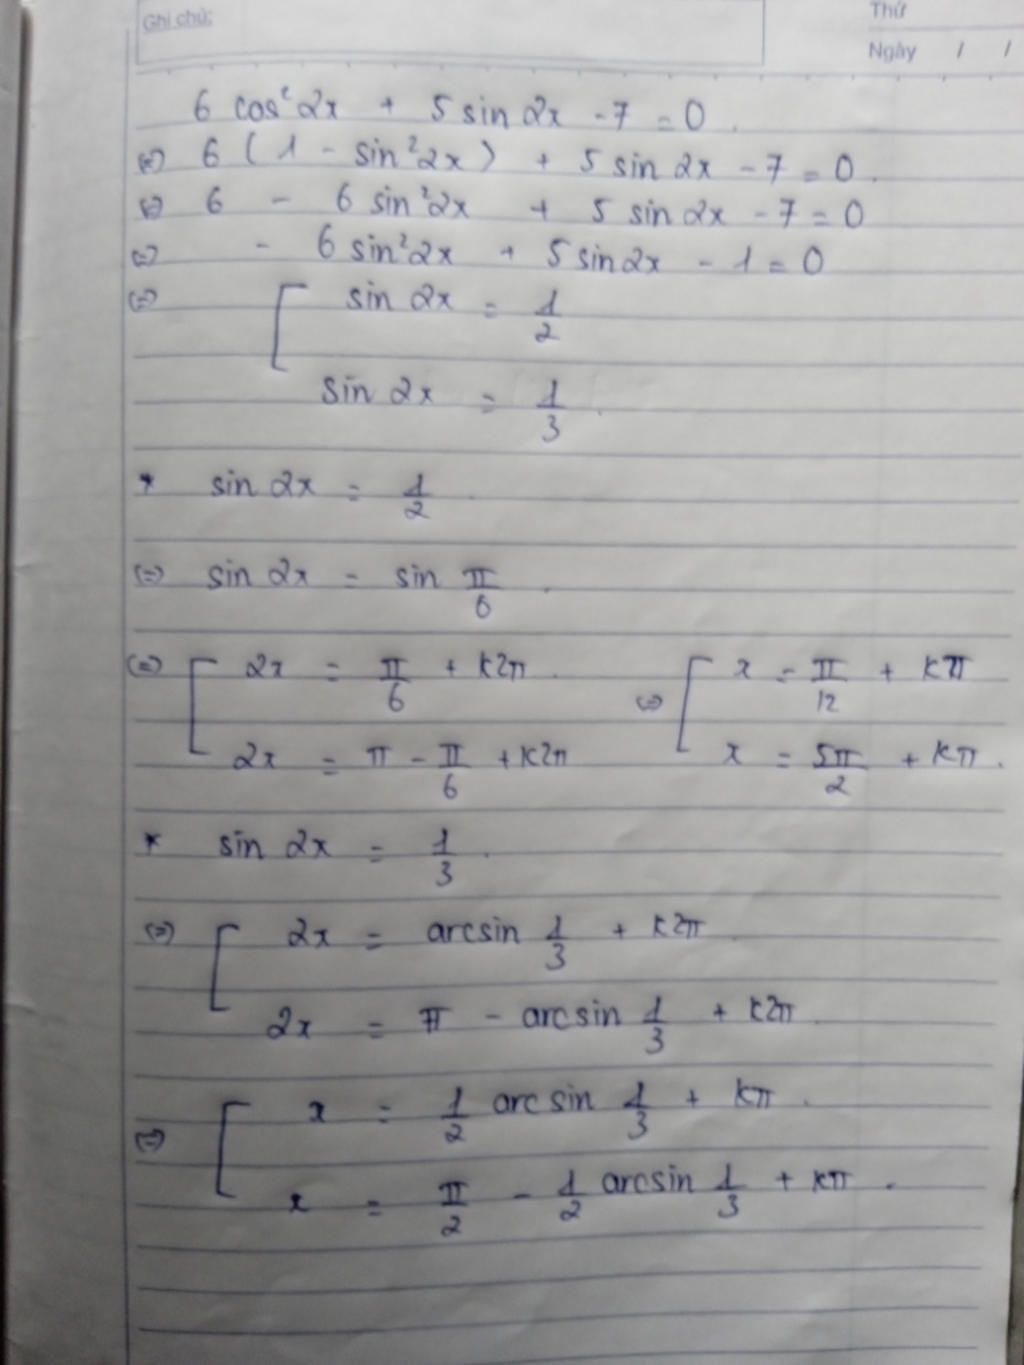 Ghi chú:
Thứ
Ngày / /
6 cos²2x + 5 sin 2x - 7 = 0.
(=) 6 (1 - sin²2x) + 5 sin 2x - 7 = 0.
(=) 6 - 6 sin²2x + 5 sin 2x - 7 = 0
(=) - 6 sin²2x + 5 sin 2x - 1 = 0
(=) [ sin 2x = 1/2
sin 2x = 1/3.
* sin 2x = 1/2.
(=) sin 2x = sin π/6.
(=) [ 2x = π/6 + k2π. (=) [ x = π/12 + kπ
2x = π - π/6 + k2π x = 5π/2 + kπ.
* sin 2x = 1/3.
(=) [ 2x = arcsin 1/3 + k2π.
2x = π - arcsin 1/3 + k2π.
(=) [ x = 1/2 arcsin 1/3 + kπ.
x = π/2 - 1/2 arcsin 1/3 + kπ.